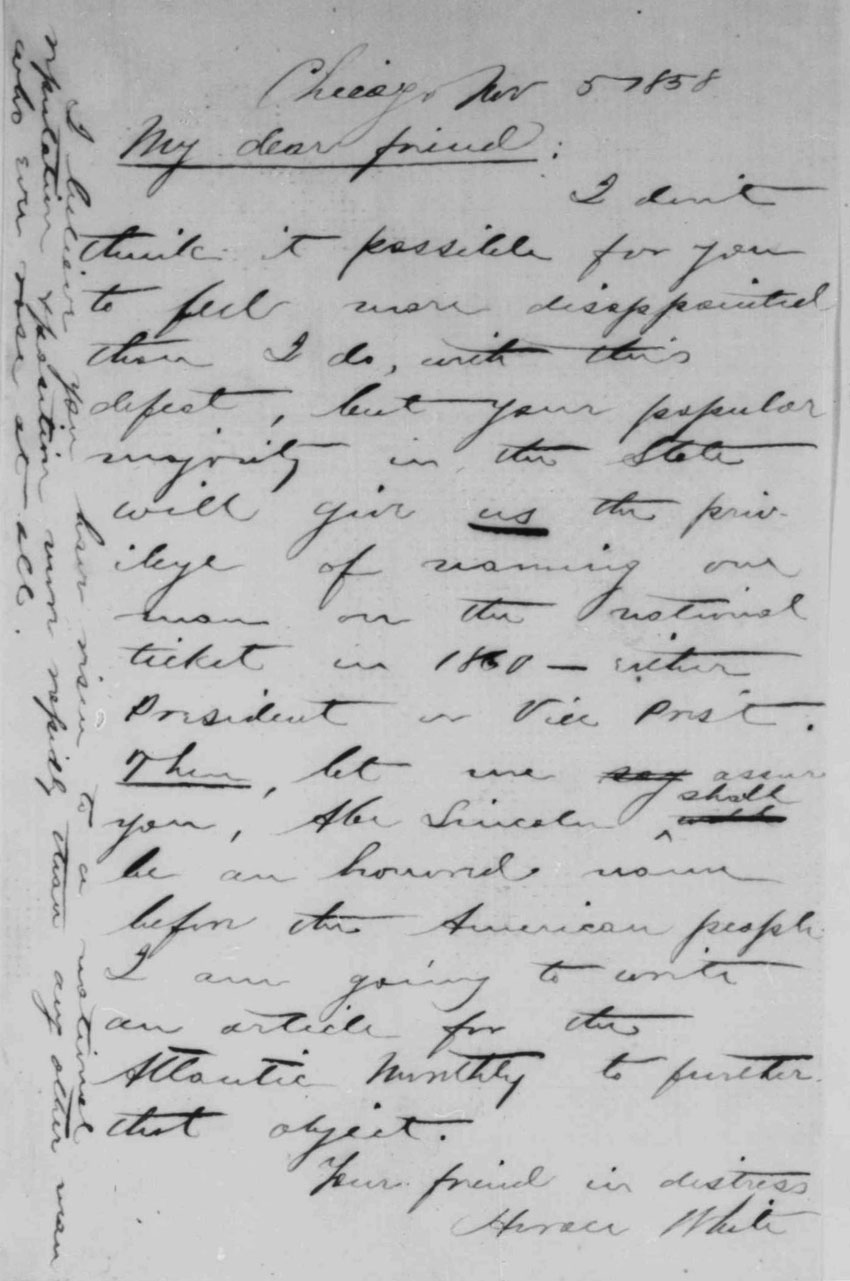 Chicago Nov 5 1858
My dear friend:
I don't
think it possible for you
to feel more disappointed
than I do, with this
defeat, but your popular
majority in the State
will give us the priv-
ilege of naming our
man on the national
ticket in 1860 — either
President or Vice Prest.
Then, let me say assure
you, Abe Lincoln shall
be an honored name
before the American people.
I am going to write
an article for the
Atlantic Monthly to further
that object.
Your friend in distress
Horace White
I believe you have risen to a national
reputation & position more rapidly than any other man
who ever rose at all.